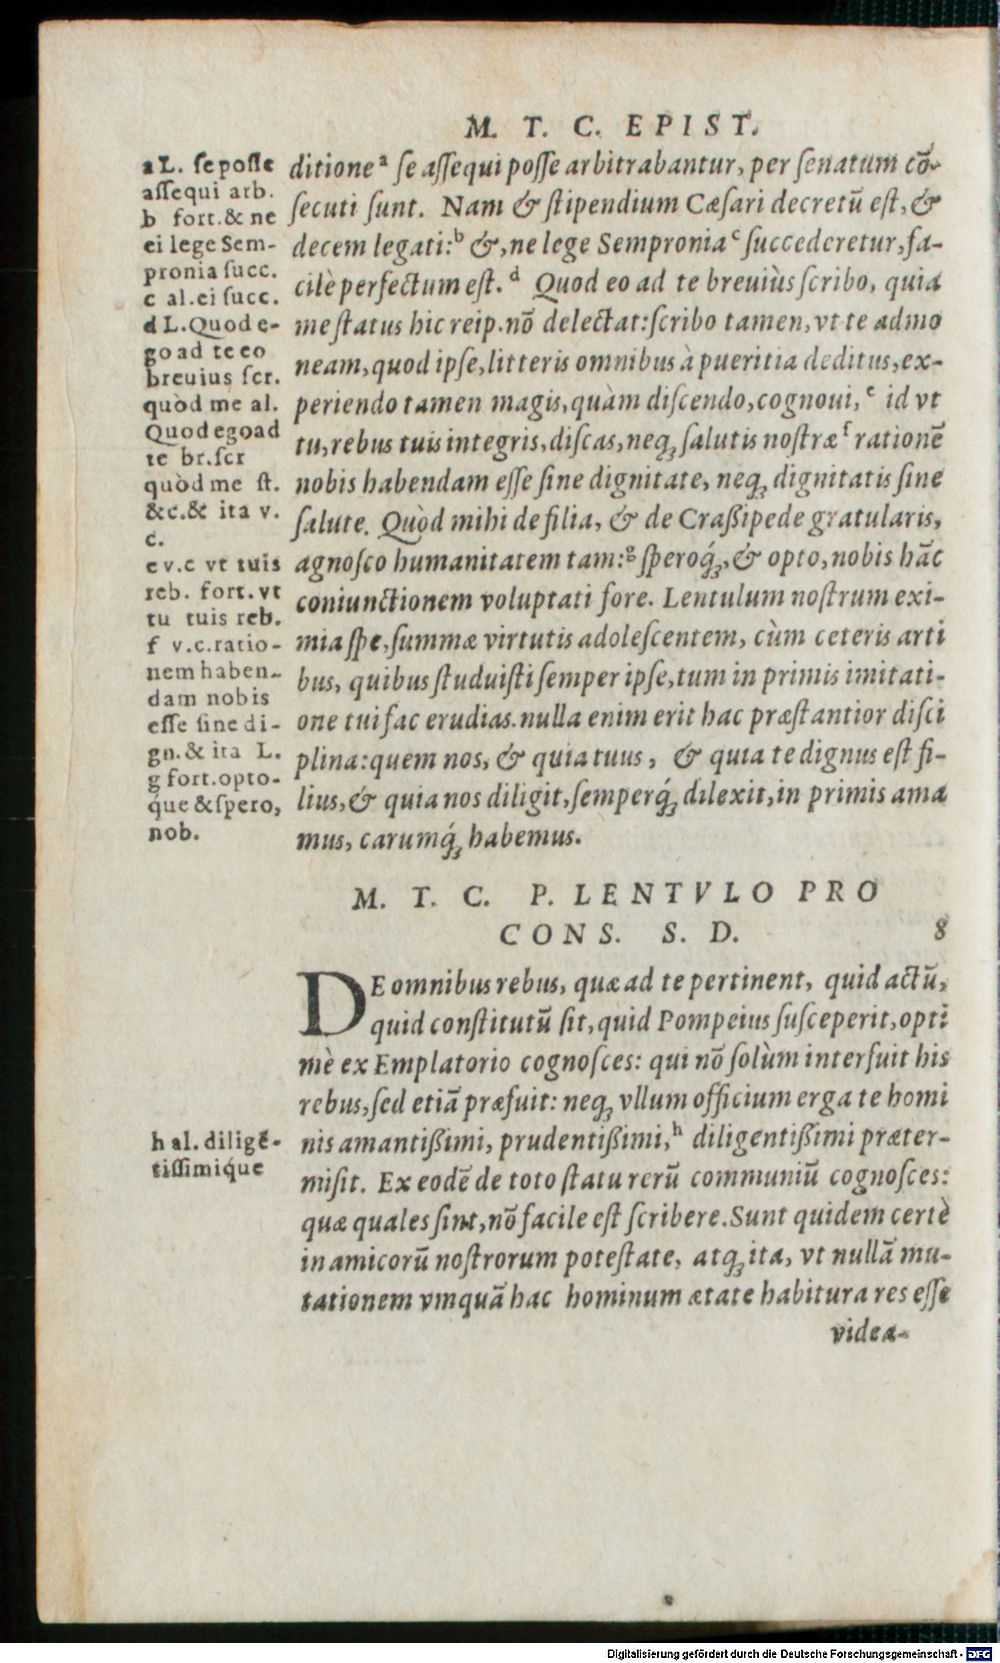 M. T. C. EPIST.
ditioneᵃ ſe aſſequi poſſe arbitrabantur, per ſenatum cõ-
ſecuti ſunt. Nam & ſtipendium Cæſari decretũ eſt, &
decem legati:ᵇ &, ne lege Semproniaᶜ ſuccederetur, fa-
cilè perfectum eſt.ᵈ Quod eo ad te breuiùs ſcribo, quia
me ſtatus hic reip. nõ delectat: ſcribo tamen, vt te admo
neam, quod ipſe, litteris omnibus à pueritia deditus, ex-
periendo tamen magis, quàm diſcendo, cognoui,ᵉ id vt
tu, rebus tuis integris, diſcas, neq; ſalutis noſtræᶠ rationẽ
nobis habendam eſſe ſine dignitate, neq; dignitatis ſine
ſalute. Quòd mihi de filia, & de Craßipede gratularis,
agnoſco humanitatem tuam:ᵍ ſperoq́;, & opto, nobis hãc
coniunctionem voluptati fore. Lentulum noſtrum exi-
mia ſpe, ſummæ virtutis adoleſcentem, cùm ceteris arti
bus, quibus ſtuduiſti ſemper ipſe, tum in primis imitati-
one tui fac erudias. nulla enim erit hac præſtantior diſci
plina: quem nos, & quia tuus, & quia te dignus eſt fi-
lius, & quia nos diligit, ſemperq́; dilexit, in primis ama
mus, carumq́; habemus.
a L. ſe poſſe
aſſequi arb.
b fort. & ne
ei lege Sem-
pronia ſucc.
c al. ei ſucc.
d L. Quod e-
go ad te eo
breuius ſcr.
quòd me al.
Quod ego ad
te br. ſcr
quòd me ſt.
&c. & ita v.
c.
e v. c vt tuis
reb. fort. vt
tu tuis reb.
f v. c. ratio-
nem haben-
dam nobis
eſſe ſine di-
gn. & ita L.
g fort. opto-
que & ſpero,
nob.
M. T. C. P. LENTVLO PRO
CONS. S. D. 8
DE omnibus rebus, quæ ad te pertinent, quid actũ,
quid conſtitutũ ſit, quid Pompeius ſuſceperit, opti
mè ex Emplatorio cognoſces: qui nõ ſolùm interfuit his
rebus, ſed etiã præfuit: neq; vllum officium erga te homi
nis amantißimi, prudentißimi,ʰ diligentißimi præter-
miſit. Ex eodẽ de toto ſtatu rerũ communiũ cognoſces:
quæ quales ſint, nõ facile eſt ſcribere. Sunt quidem certè
in amicorũ noſtrorum poteſtate, atq; ita, vt nullã mu-
tationem vmquã hac hominum ætate habitura res eſſe
videa-
h al. diligẽ-
tiſſimiq́ue
Digitalisierung gefördert durch die Deutsche Forschungsgemeinschaft - DFG